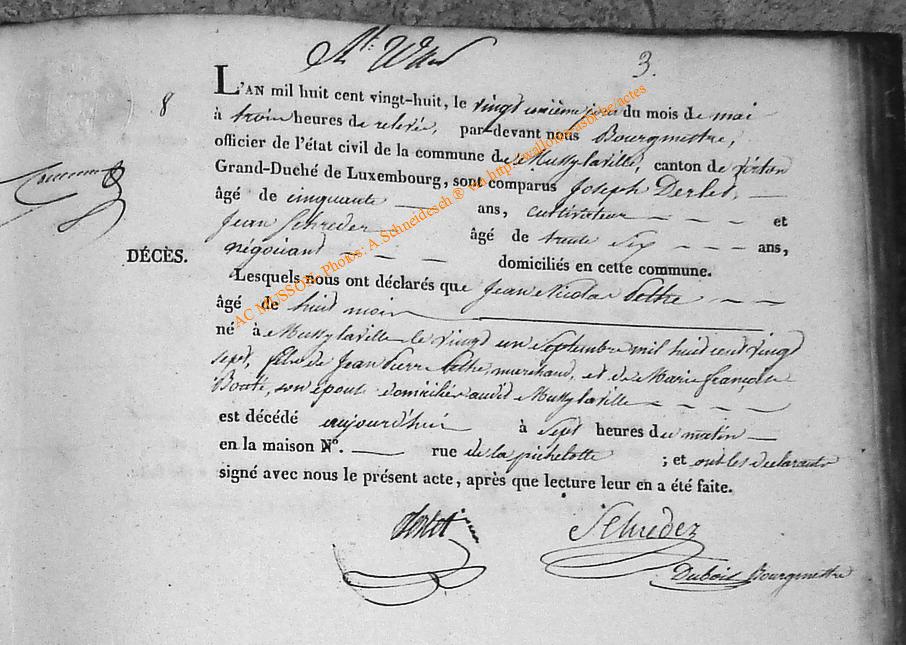 3.
8
L'AN mil huit cent vingt-huit, le vingt unième jour du mois de mai
à trois heures de relevée, par-devant nous Bourgmestre,
officier de l'état civil de la commune de Mussy laville, canton de Virton
Grand-Duché de Luxembourg, sont comparus Joseph Derlet,
âgé de cinquante ans, cultivateur et
Jean Schreder âgé de trente six ans,
négociant domiciliés en cette commune.
DÉCÈS.
Lesquels nous ont déclarés que Jean Nicolas
âgé de huit mois
né à Mussy laville le vingt un Septembre mil huit cent vingt
sept, fils de Jean Pierre marchand, et de Marie françoise
son épouse domiciliés audit Mussy laville
est décédé aujourd'hui à Sept heures du matin
en la maison N°. rue de la pichelotte ; et ont les déclarants
signé avec nous le présent acte, après que lecture leur en a été faite.
Derlet
Schreder
Dubois Bourgmestre
AC MUSSON, Photos: A.Schneidesch ® via http://wallonia.asbl.be/actes